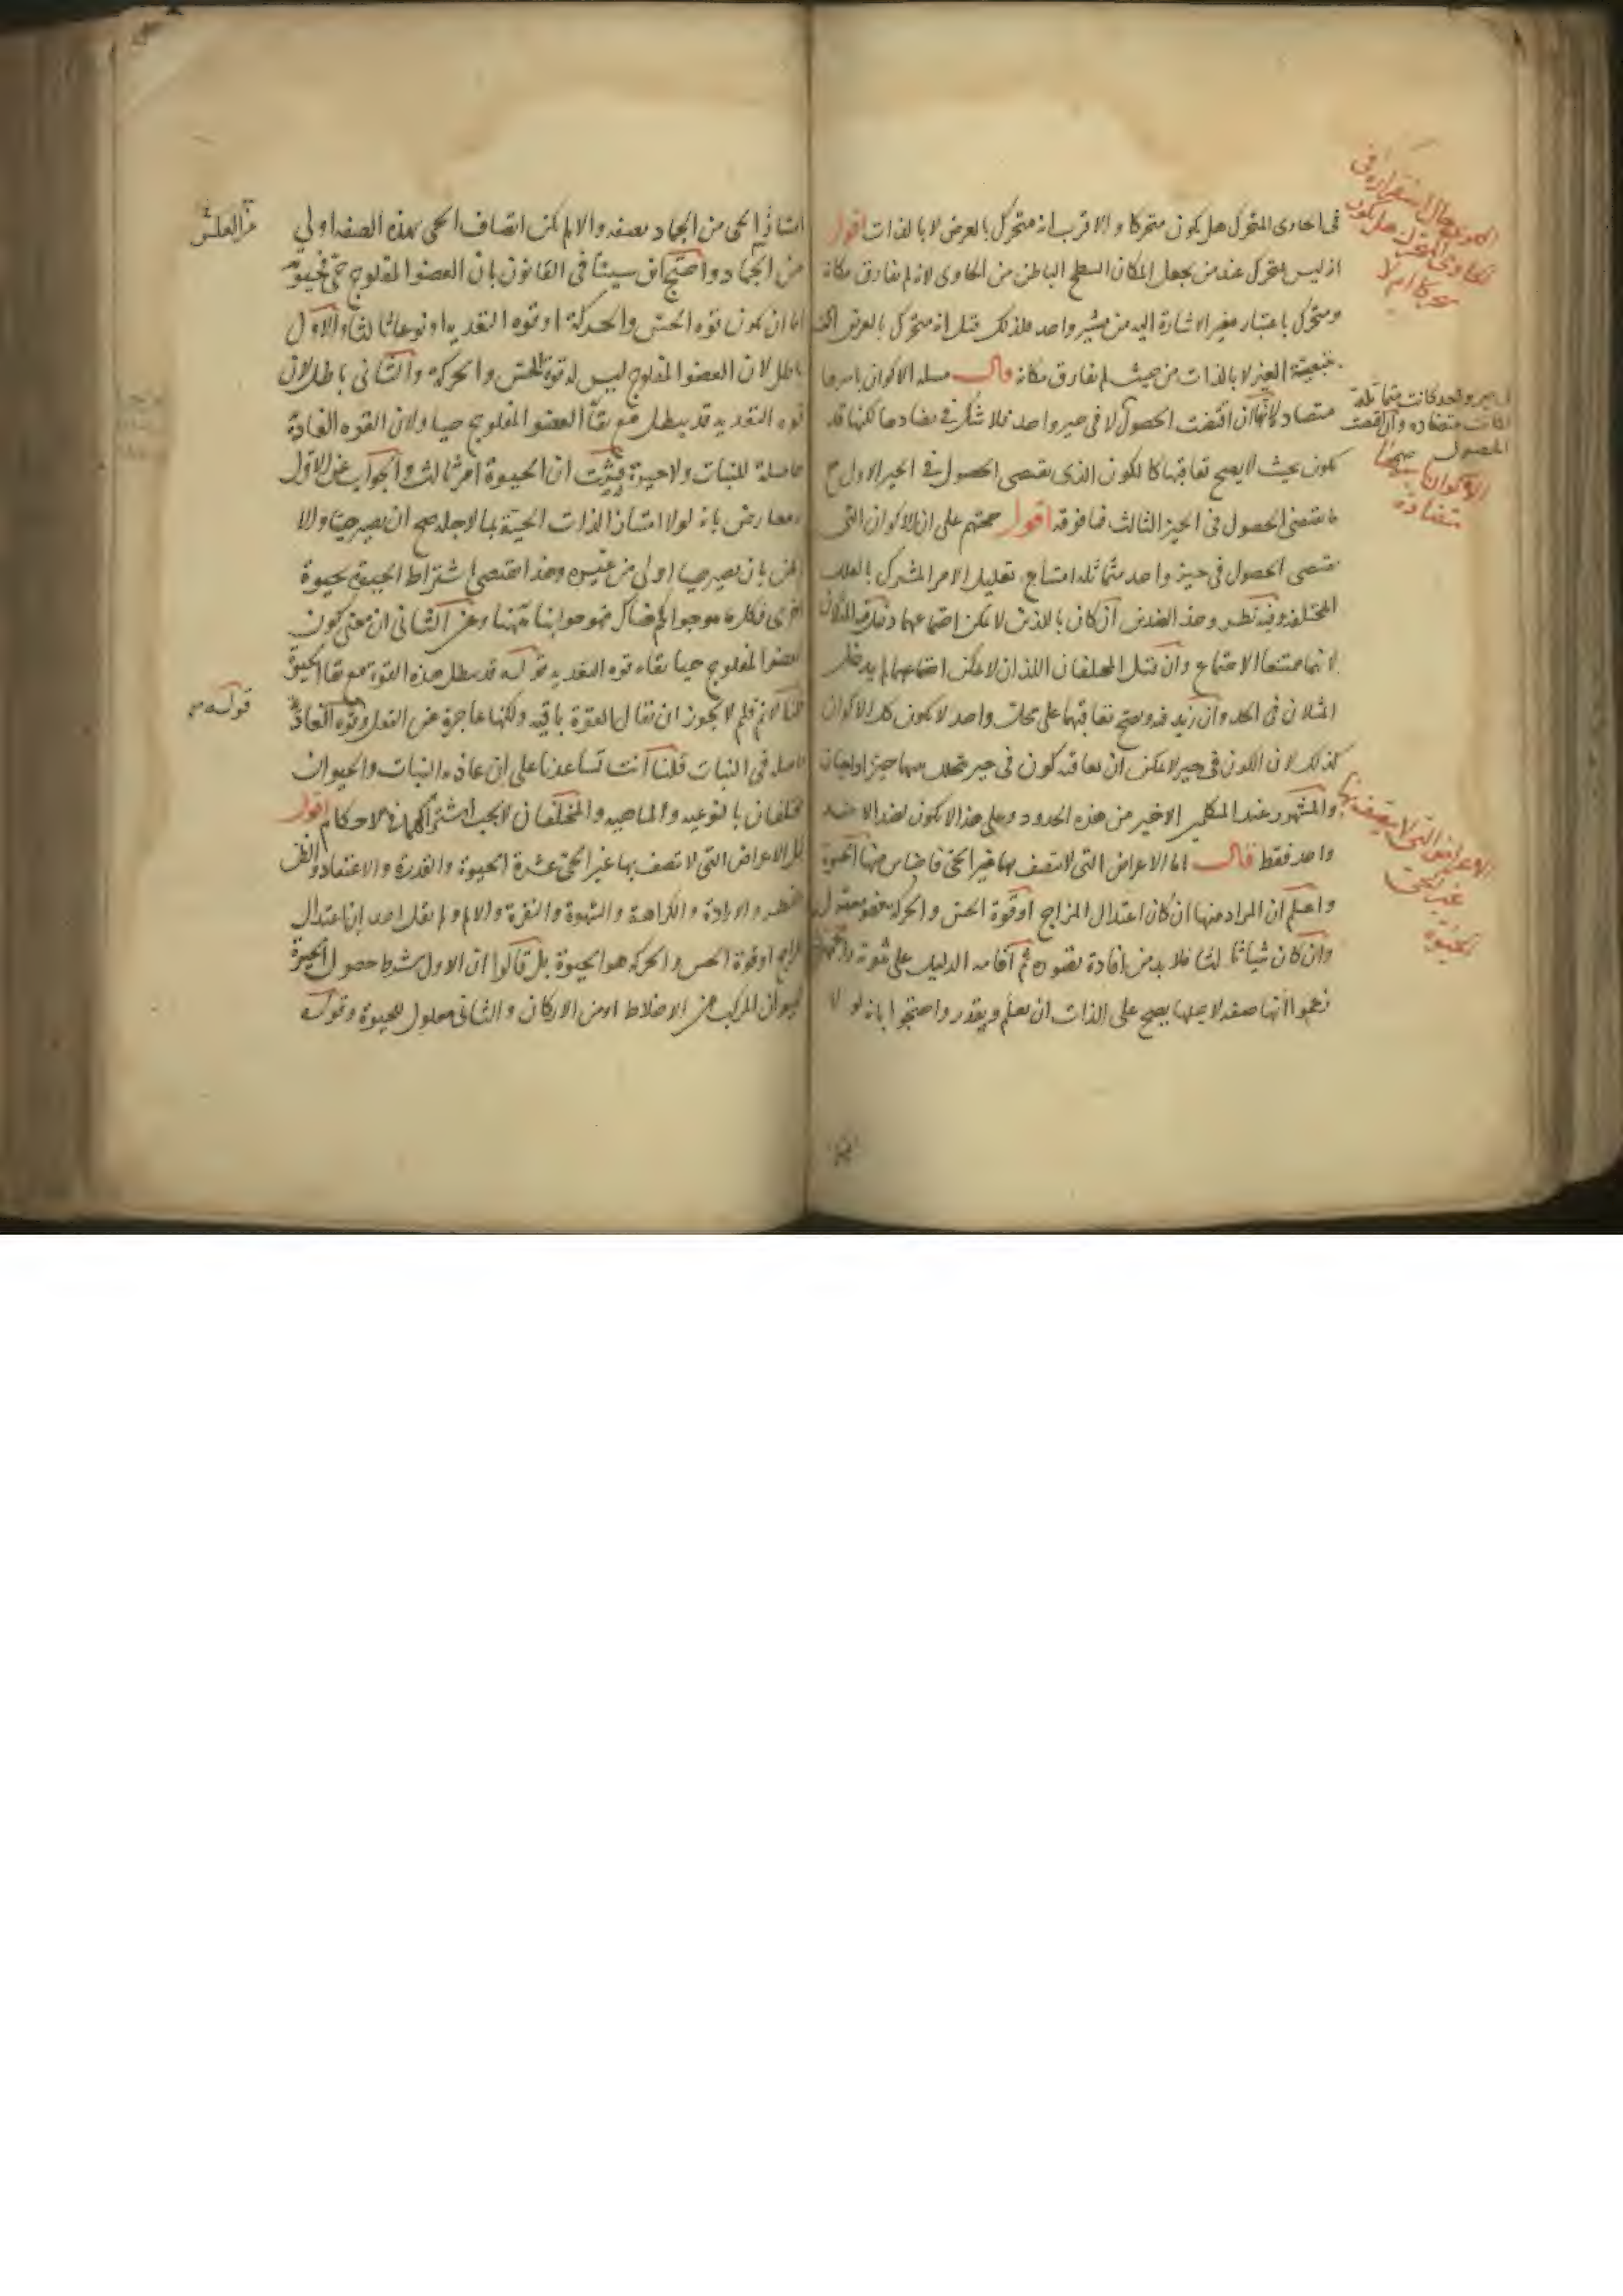 فى الحاوى المتحرك هل يكون متحركا والاقرب انه متحرك بالعرض لا بالذات اقول
اذ ليس بمتحرك عند من يجعل المكان السطح الباطن من الحاوى لانه لم يفارق مكانه
ومتحرك باعتبار تغير الاشارة اليه من مشير واحد فلذلك قيل انه متحرك بالعرض
بتبعية الغير لا بالذات من حيث لم يفارق مكانه قال مسئلة الاكوان باسرها
متضادة لانها ان اقتضت الحصول لا فى حيز واحد فلا شك فى تضادها لكنها قد
تكون بحيث لا يصح تعاقبها كالكون الذى يقتضى الحصول فى الحيز الاول مع
ما يقتضى الحصول فى الحيز الثالث فما فوقه اقول حجتهم على ان الاكوان التى
تقتضى الحصول فى حيز واحد متماثلة امتناع تعليل الامر المشترك بالعلل
المختلفة وفيه نظر وحد الضدين ان كان باللذين لا يمكن اجتماعهما
لانهما ممتنعا الاجتماع وان قيل المختلفان اللذان لا يمكن اجتماعهما لم يدخل
المثلان فى الحد وان زيد فيه ويصح تعاقبهما على محل واحد لا يكون كل الاكوان
كذلك لان الكون فى حيز لا يمكن ان يعاقبه كون فى حيز
والمشهور عند المتكلمين الاخير من هذه الحدود وعلى هذا لا يكون لضد الا ضد
واحد فقط قال اما الاعراض التى لا يتصف بها غير الحى فاجناس منها الحيوة
واعلم ان المراد منها ان كان اعتدال المزاج او قوة الحس والحركة فهو معقول
وان كان شيئا ثالثا فلا بد من افادة تصوره ثم اقامة الدليل على ثبوته
زعموا انها صفة لاجلها يصح على الذات ان يعلم ويقدر واحتجوا بانه لولا
الاعراض التى لا يتصف بها
غير الحى
الحيوة
امتياز الحى من الجماد بصفة والا لم يكن اتصاف الحى بهذه الصفة اولى
من الجماد واحتج ابن سينا فى القانون بان العضو المفلوج حى فحيوته
اما ان تكون قوة الحس والحركة او قوة التغذية او نوعا ثالثا والاول
باطل لان العضو المفلوج ليس له قوة الحس والحركة والثانى باطل لان
قوة التغذية قد يبطل مع بقاء العضو المفلوج حيا ولان القوة الغاذية
حاصلة للنبات ولا حيوة فثبت ان الحيوة امر ثالث والجواب عن الاول
معارض بانه لولا امتياز الذات الحية بما لاجله صح ان يصير حيا والا
لم يكن بان يصير حيا اولى من غيره وهذا يقتضى اشتراط الحيوة بحيوة
اخرى فكل ما هو جوابكم هناك فهو جوابنا ههنا وعن الثانى ان معنى كون
العضو المفلوج حيا بقاء قوة التغذية قوله قد يبطل هذه القوة مع بقاء الحيوة
قلنا لا نم فلم لا يجوز ان يقال القوة باقية ولكنها عاجزة عن الفعل وقوة الغاذية
حاصلة فى النبات قلنا انت تساعدنا على ان غاذية النبات والحيوان
مختلفان بالنوعية والماهية والمختلفان لا يجب اشتراكهما فى الاحكام اقول
قيل الاعراض التى لا تتصف بها غير الحى عشرة الحيوة والقدرة والاعتقاد والظن
والنظر والارادة والكراهة والشهوة والنفرة والالم ولم يقل احد ان اعتدال
المزاج او قوة الحس والحركة هو الحيوة بل قالوا ان الاول شرط حصول الحيوة
للحيوان المركب من الاخلاط او من الاركان والثانى معلول للحيوة وقوله
من العكس
قوله